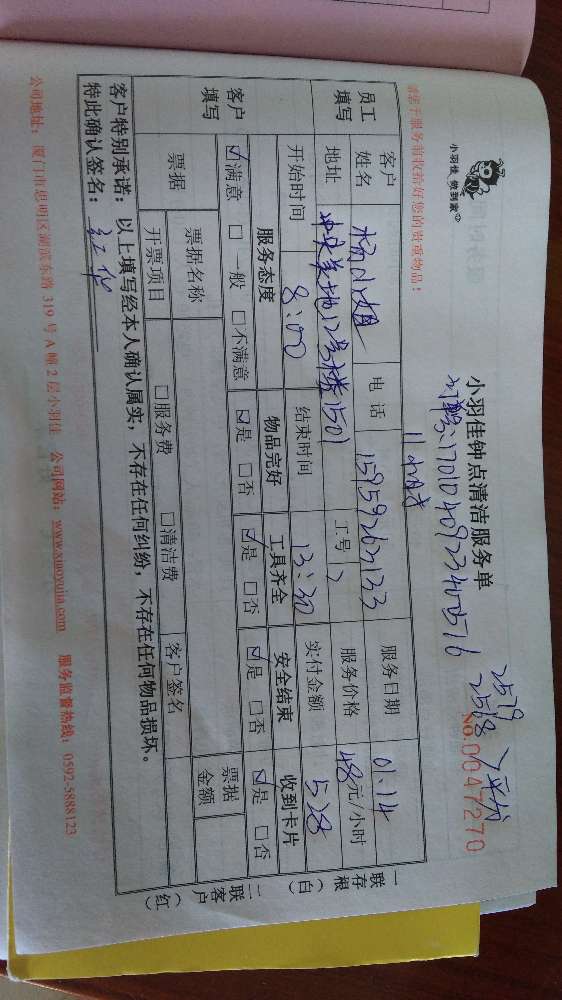 小羽佳 做到家
小羽佳钟点清洁服务单
170104092340576
2579
2568
NO.0047270
请客于服务前收拾好您的贵重物品！
11小时
员工填写
客户姓名 杨小姐 电话 15959262133 服务日期 01.14
地址 中央美地12号楼1501 工号 服务价格 48元/小时
开始时间 8:00 结束时间 13:30 实付金额 528
客户填写
服务态度 物品完好 工具齐全 安全结束 收到卡片
☑满意 □一般 □不满意 ☑是 □否 ☑是 □否 ☑是 □否 ☑是 □否
票据 票据名称 票据金额
开票项目 □服务费 □清洁费 客户签名
一联存根（白） 二联客户（红）
客户特别承诺：以上填写经本人确认属实，不存在任何纠纷，不存在任何物品损坏。
特此确认签名：
公司地址：厦门市思明区湖滨东路 319 号 A 幢 2 层小羽佳 公司网站：www.xiaoyujia.com 服务监督热线：0592-5888123